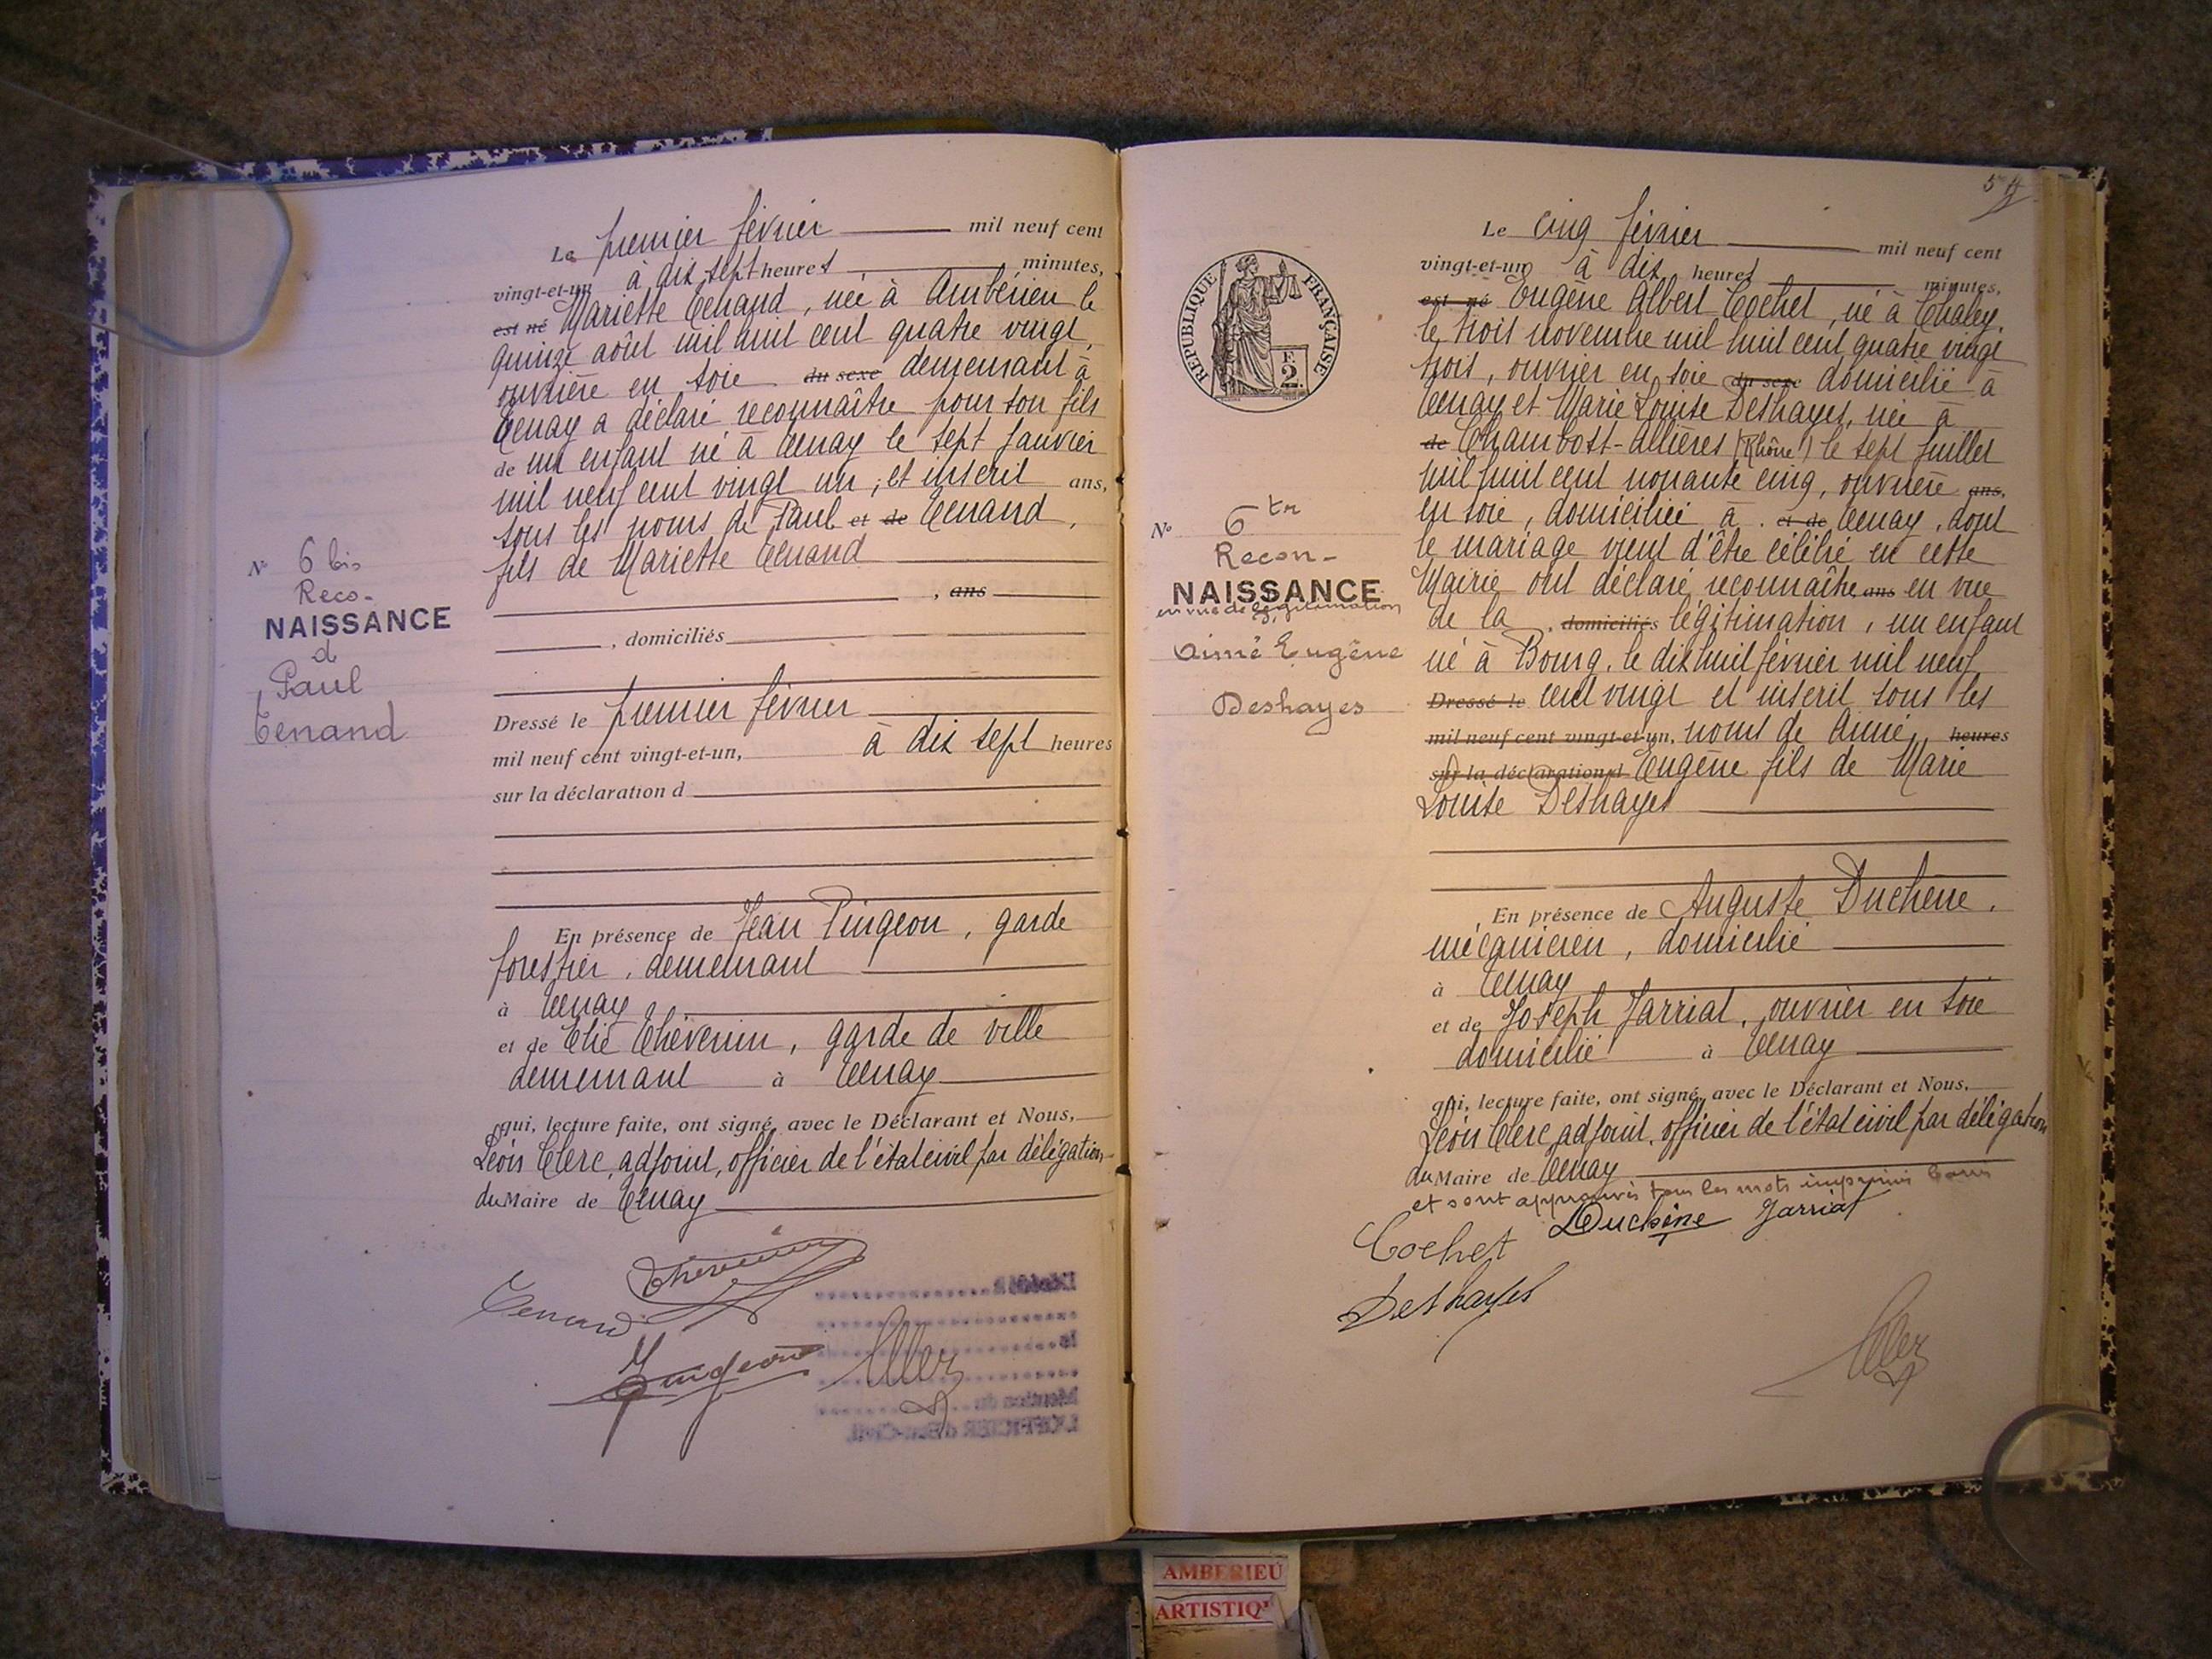 Le premier février mil neuf cent
vingt-et-un à dix sept heures minutes,
est né Mariette Tenand, née à Ambérieu le
quinze août mil huit cent quatre vingt,
ouvrière en soie du sexe demeurant à
Tenay a déclaré reconnaître pour son fils
de un enfant né à Tenay le sept janvier
mil neuf cent vingt un, et inscrit ans,
sous les noms de Paul et de Tenand,
fils de Mariette Tenand
, ans
, domiciliés
Dressé le premier février
mil neuf cent vingt-et-un, à dix sept heures
sur la déclaration d
En présence de Jean Pingeon, garde
forestier, demeurant
à Tenay
et de Elie Thévenin, garde de ville
demeurant à Tenay
qui, lecture faite, ont signé avec le Déclarant et Nous,
Léon Clerc, adjoint, officier de l'état civil par délégation
du Maire de Tenay
Thévenin
Tenand
Pingeon
Clerc
No 6 bis
Reco-
NAISSANCE
d
Paul
Tenand
5
Le cinq février mil neuf cent
vingt-et-un à dix heures minutes,
est né Eugène Albert Cochet, né à Chaley,
le trois novembre mil huit cent quatre vingt
trois, ouvrier en soie du sexe domicilié à
Tenay et Marie Louise Deshayes, née à
de Chambost-Allières (Rhône) le sept juillet
mil huit cent nonante cinq, ouvrière ans,
en soie, domiciliée à et de Tenay, dont
le mariage vient d'être célébré en cette
Mairie ont déclaré reconnaître ans en vue
de la , domiciliés légitimation, un enfant
né à Bourg, le dix huit février mil neuf
Dressé le cent vingt et inscrit sous les
mil neuf cent vingt-et-un, noms de Aimé, heures
sur la déclaration d Eugène fils de Marie
Louise Deshayes
En présence de Auguste Duchêne,
mécanicien, domicilié
à Tenay
et de Joseph Jarriat, ouvrier en soie
domicilié à Tenay
qui, lecture faite, ont signé avec le Déclarant et Nous,
Léon Clerc, adjoint, officier de l'état civil par délégation
du Maire de Tenay
et sont approuvés tous les mots imprimés
Cochet Duchêne Jarriat
Deshayes
Clerc
REPUBLIQUE FRANÇAISE
F.
2.
No 6 ter
Recon-
NAISSANCE
en vue de légitimation
Aimé Eugène
Deshayes
AMBERIEU
ARTISTIQ'